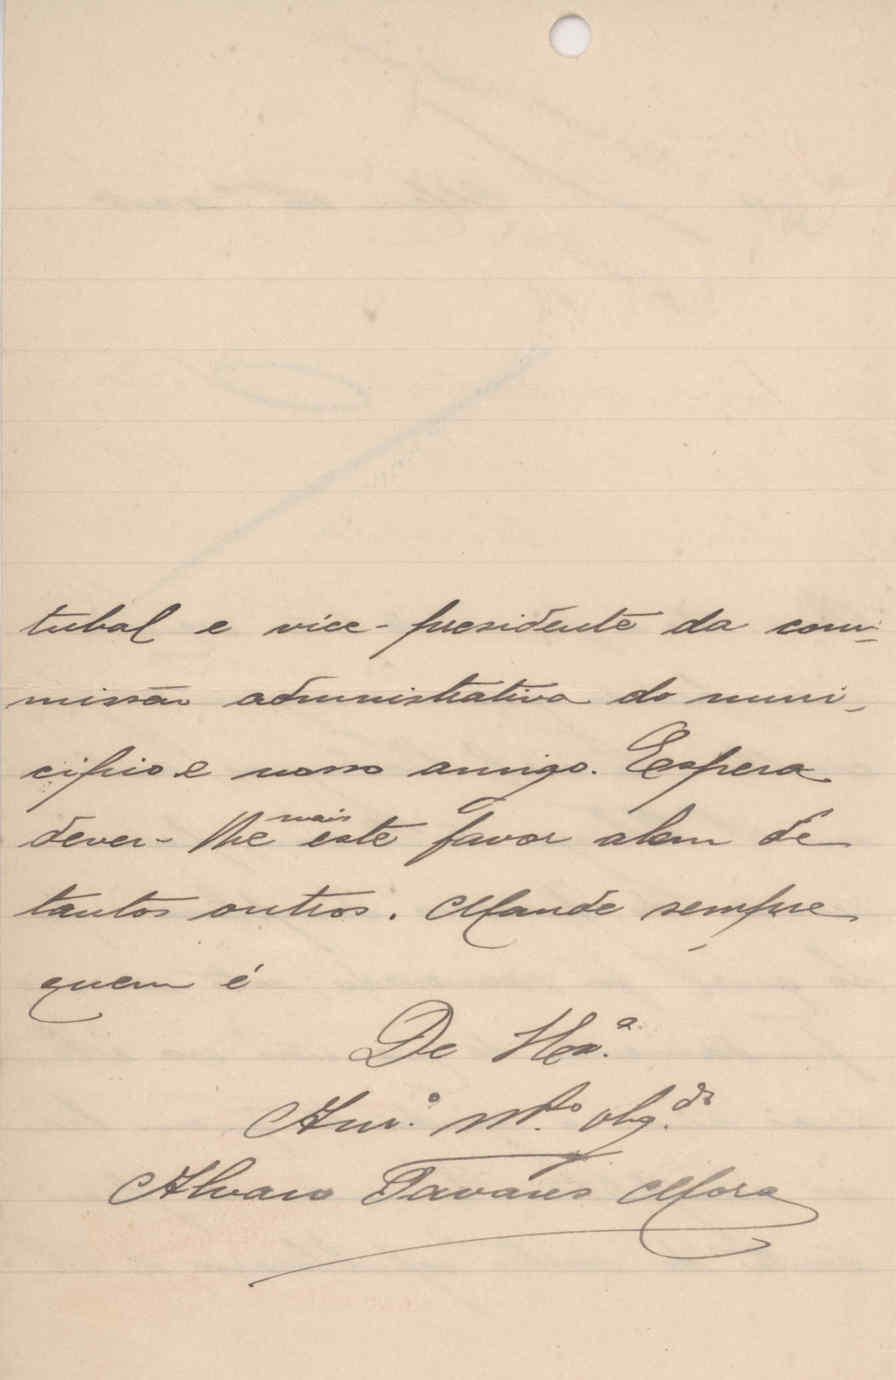 tubal e vice-presidente da com-
missão administrativa do muni-
cipio e nosso amigo. Espera
dever-lhe mais este favor alem de
tantos outros. Mande sempre
quem é
De V. Ex.ª
Am.º m.to obg.do
Alvaro Tavares Mora